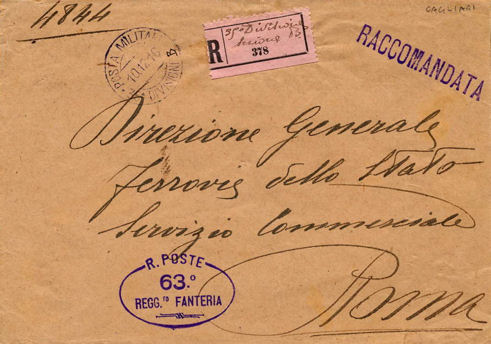 CAGLIARI
4844
POSTA MILITARE
10.12.16
DIVISIONE B
R
35ª Divisione
378
RACCOMANDATA
Direzione Generale
Ferrovie dello Stato
Servizio Commerciale
Roma
R. POSTE
63.º
REGG.TO FANTERIA